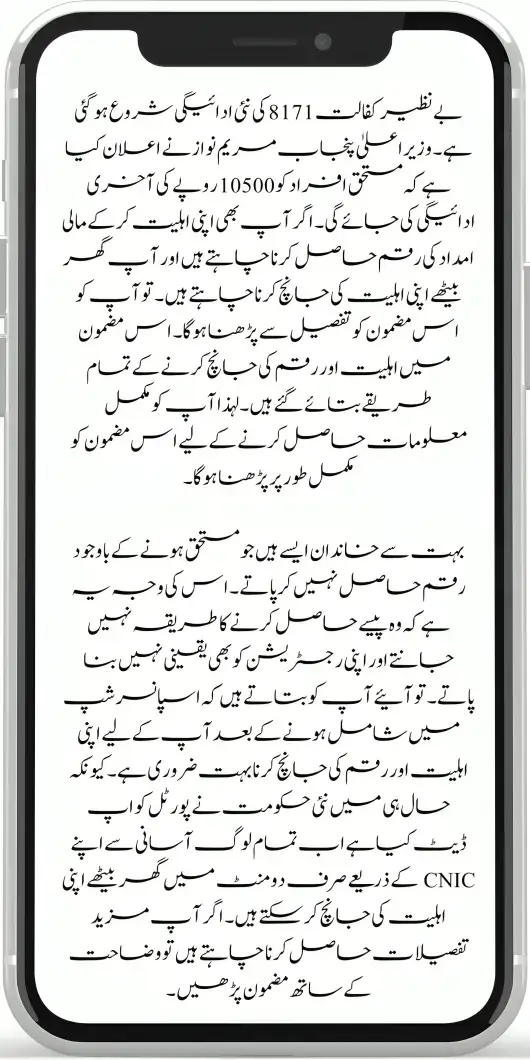 بے نظیر کفالت 8171 کی نئی ادائیگی شروع ہو گئی
ہے۔ وزیر اعلیٰ پنجاب مریم نواز نے اعلان کیا
ہے کہ مستحق افراد کو 10500 روپے کی آخری
ادائیگی کی جائے گی۔ اگر آپ بھی اپنی اہلیت کر کے مالی
امداد کی رقم حاصل کرنا چاہتے ہیں اور آپ گھر
بیٹھے اپنی اہلیت کی جانچ کرنا چاہتے ہیں۔ تو آپ کو
اس مضمون کو تفصیل سے پڑھنا ہوگا۔ اس مضمون
میں اہلیت اور رقم کی جانچ کرنے کے تمام
طریقے بتائے گئے ہیں۔ لہذا آپ کو مکمل
معلومات حاصل کرنے کے لیے اس مضمون کو
مکمل طور پر پڑھنا ہوگا۔
بہت سے خاندان ایسے ہیں جو مستحق ہونے کے باوجود
رقم حاصل نہیں کر پاتے۔ اس کی وجہ یہ
ہے کہ وہ پیسے حاصل کرنے کا طریقہ نہیں
جانتے اور اپنی رجسٹریشن کو بھی یقینی نہیں بنا
پاتے۔ تو آئیے آپ کو بتاتے ہیں کہ اسپانسر شپ
میں شامل ہونے کے بعد آپ کے لیے اپنی
اہلیت اور رقم کی جانچ کرنا بہت ضروری ہے۔ کیونکہ
حال ہی میں نئی حکومت نے پورٹل کو اپ
ڈیٹ کیا ہے اب تمام لوگ آسانی سے اپنے
CNIC کے ذریعے صرف دو منٹ میں گھر بیٹھے اپنی
اہلیت کی جانچ کر سکتے ہیں۔ اگر آپ مزید
تفصیلات حاصل کرنا چاہتے ہیں تو وضاحت
کے ساتھ مضمون پڑھیں۔